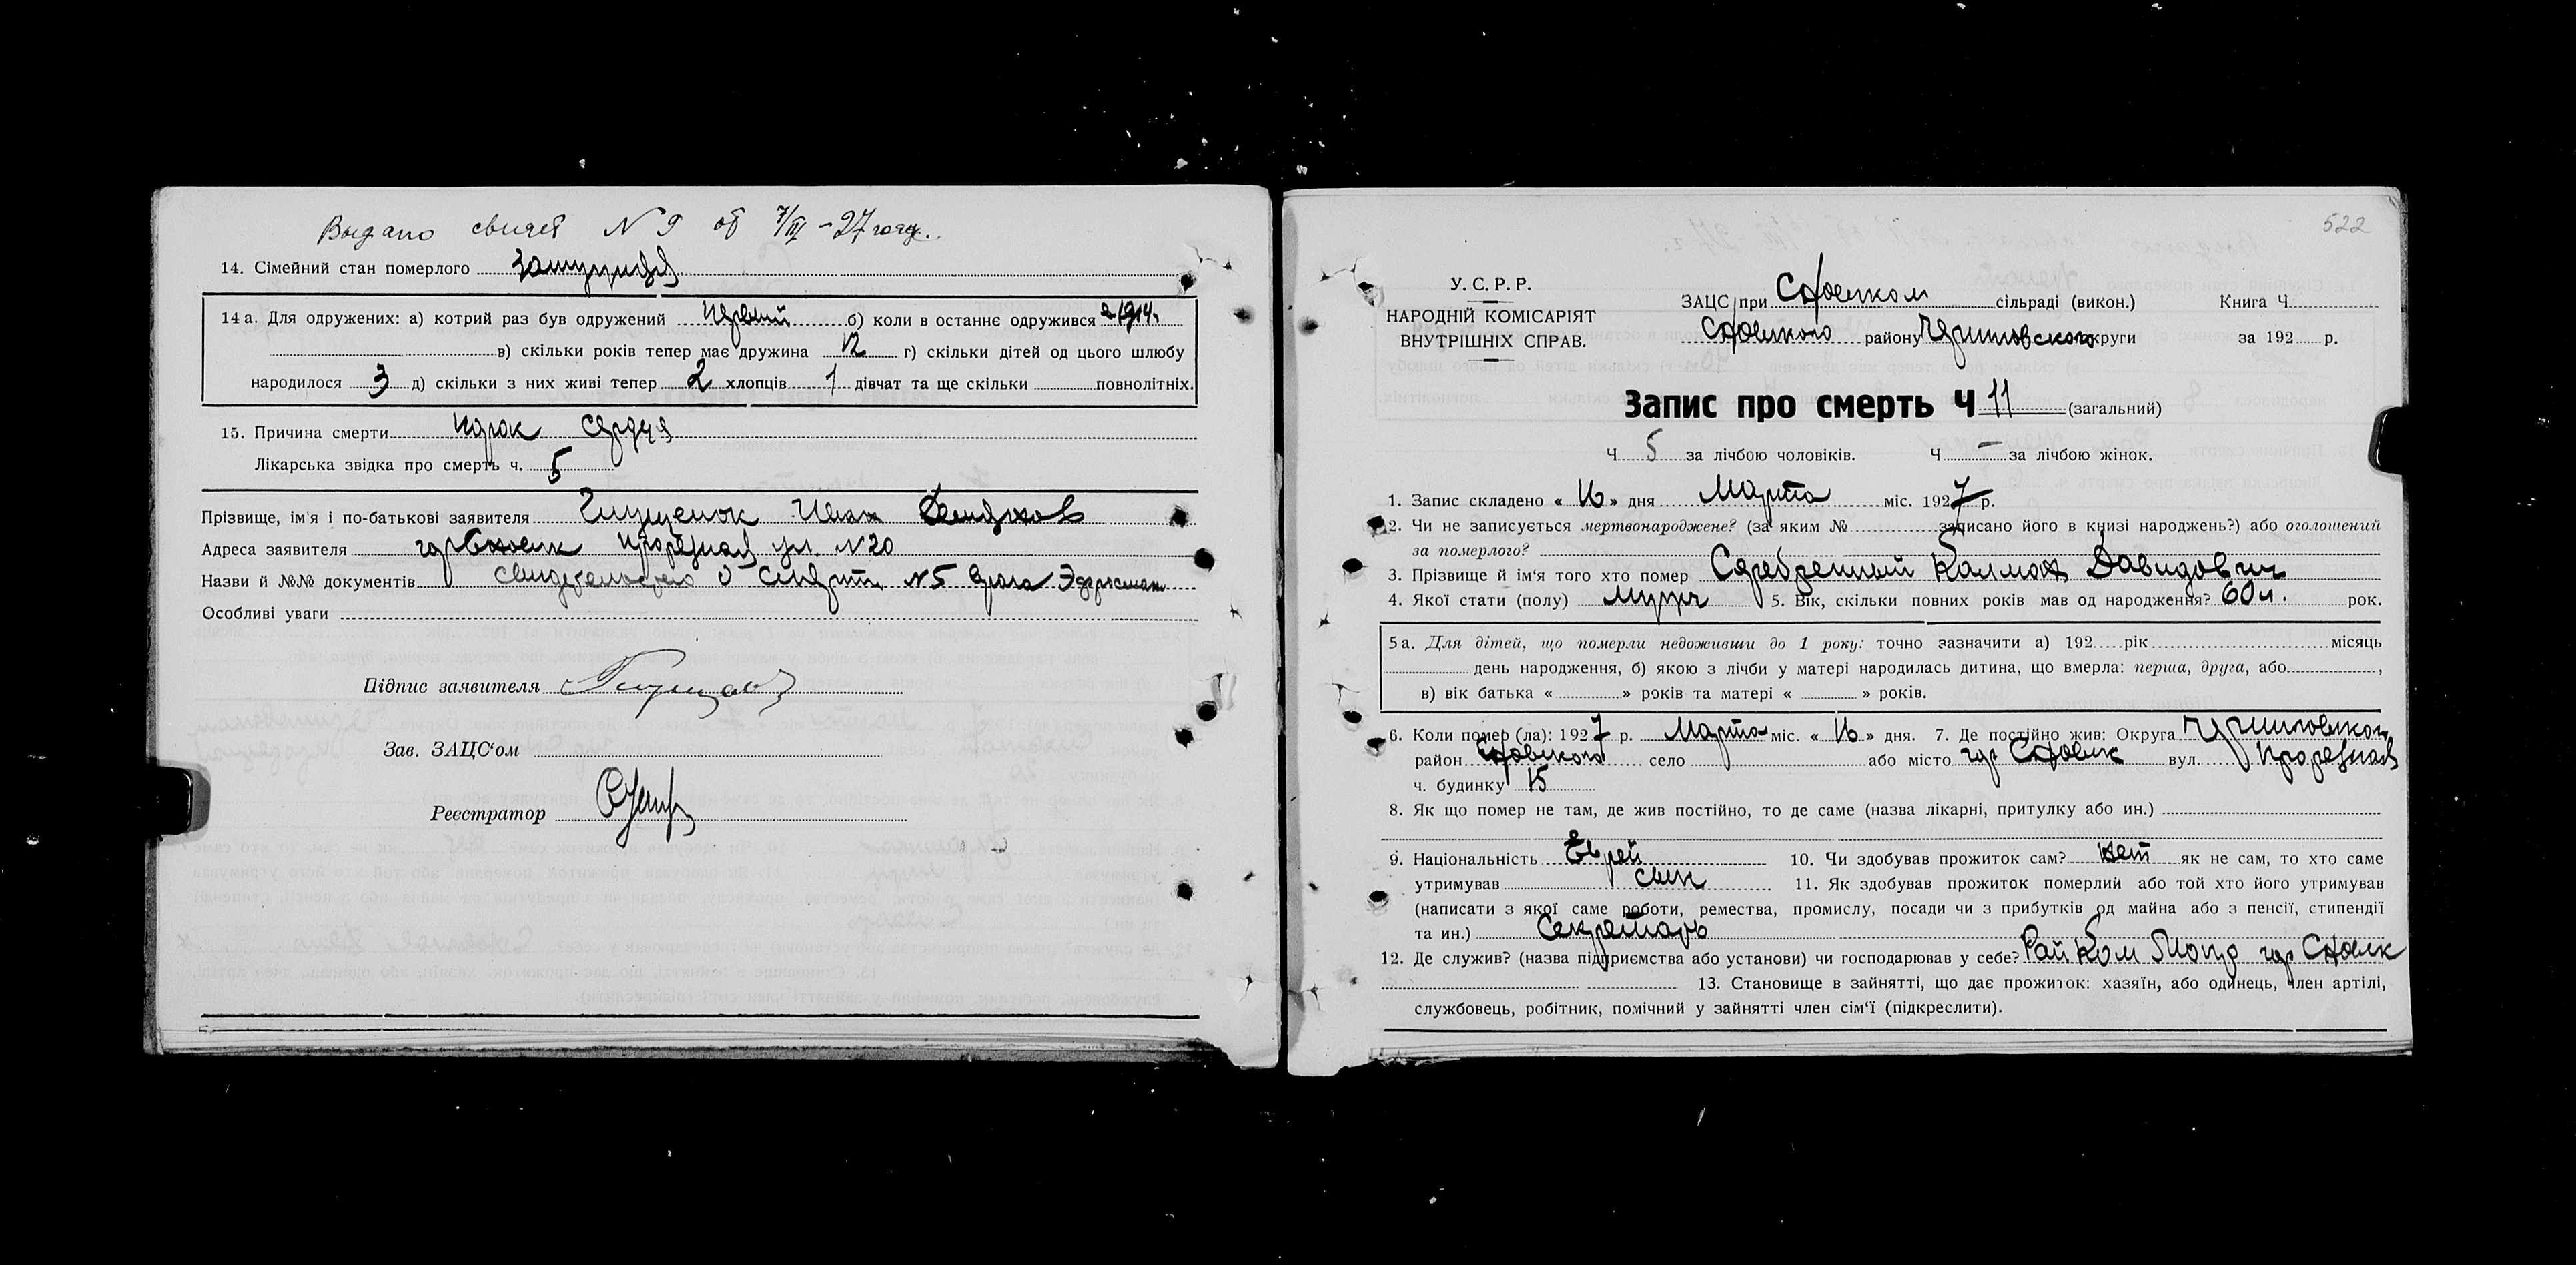 Выдано свидет N 9 от 7/III – 27 года.
14. Сімейний стан померлого замужняя
14 а. Для одружених: а) котрий раз був одружений первий б) коли в останнє одружився 1914.
в) скільки років тепер має дружина 12 г) скільки дітей од цього шлюбу
народилося 3 д) скільки з них живі тепер 2 хлопців 1 дівчат та ще скільки повнолітніх.
15. Причина смерти порок сердця
Лікарська звідка про смерть ч. 5
Прізвище, ім'я і по-батькові заявителя Иван
Адреса заявителя гор Прорезная ул. N 20
Назви й №№ документів свидетельство о смерти N 5 врача
Особливі уваги
Підпис заявителя
Зав. ЗАЦС'ом
Реєстратор
522
У. С. Р. Р.
НАРОДНІЙ КОМІСАРІЯТ
ВНУТРІШНІХ СПРАВ.
ЗАЦС при сільраді (викон.) Книга Ч.
району округи за 192 р.
Запис про смерть Ч 11 (загальний)
Ч 5 за лічбою чоловіків. Ч – за лічбою жінок.
1. Запис складено « 16 » дня Марта міс. 1927 р.
2. Чи не записується мертвонароджене? (за яким № записано його в книзі народжень?) або оголошений
за померлого?
3. Прізвище й ім'я того хто помер Серебренный Калман Давидович
4. Якої стати (полу) мужч 5. Вік, скільки повних років мав од народження? 60 л. рок.
5 а. Для дітей, що померли недоживши до 1 року: точно зазначити а) 192 рік місяць
день народження, б) якою з лічби у матері народилась дитина, що вмерла: перша, друга, або ,
в) вік батька « » років та матері « » років.
6. Коли помер (ла): 1927 р. Марта міс. « 16 » дня. 7. Де постійно жив: Округа
район село або місто гор вул. Прорезная
ч. будинку 15
8. Як що помер не там, де жив постійно, то де саме (назва лікарні, притулку або ин.)
9. Національність Еврей 10. Чи здобував прожиток сам? нет як не сам, то хто саме
утримував сын 11. Як здобував прожиток померлий або той хто його утримував
(написати з якої саме роботи, ремества, промислу, посади чи з прибутків од майна або з пенсії, стипендії
та ин.) Секретарь
12. Де служив? (назва підприємства або установи) чи господарював у себе? Рай Ком гор
13. Становище в зайнятті, що дає прожиток: хазяїн, або одинець, член артілі,
службовець, робітник, помічний у зайнятті член сім'ї (підкреслити).